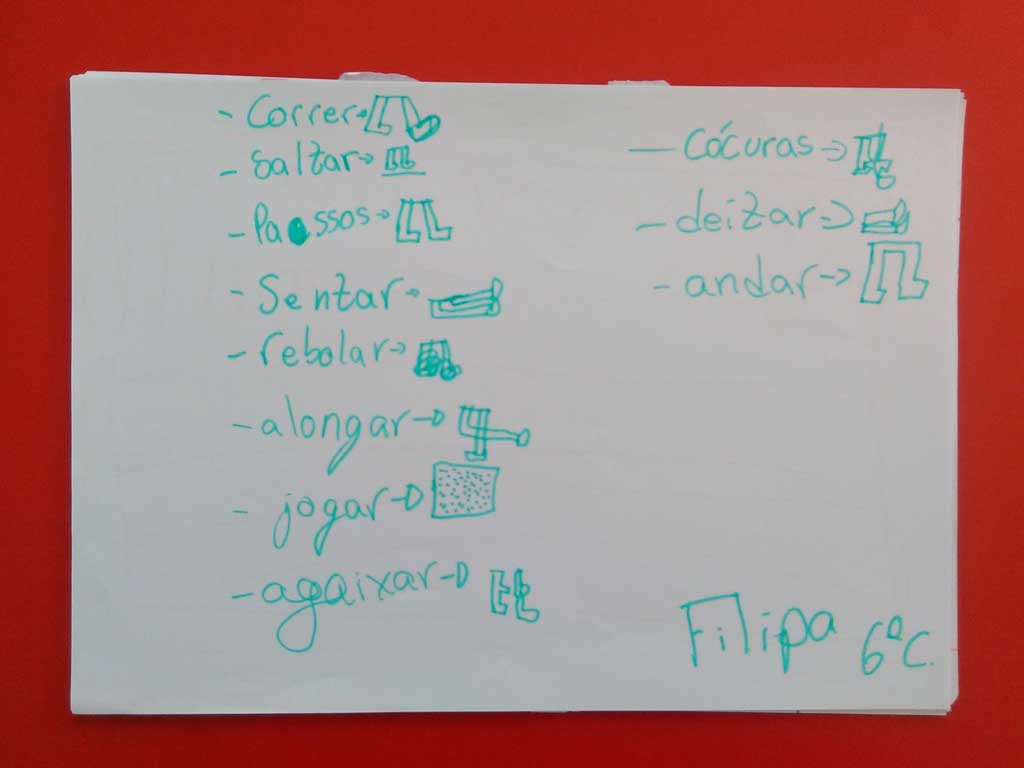 - Correr →
- Saltar →
- Passos →
- Sentar →
- rebolar →
- alongar →
- jogar →
- agaixar →
- Cócuras →
- deitar →
- andar →
Filipa 6ºC.